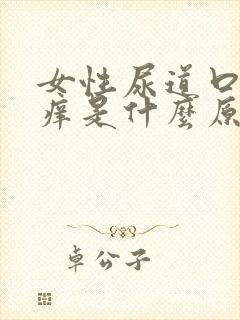 女性尿道口
痒是什麼原
卓公子